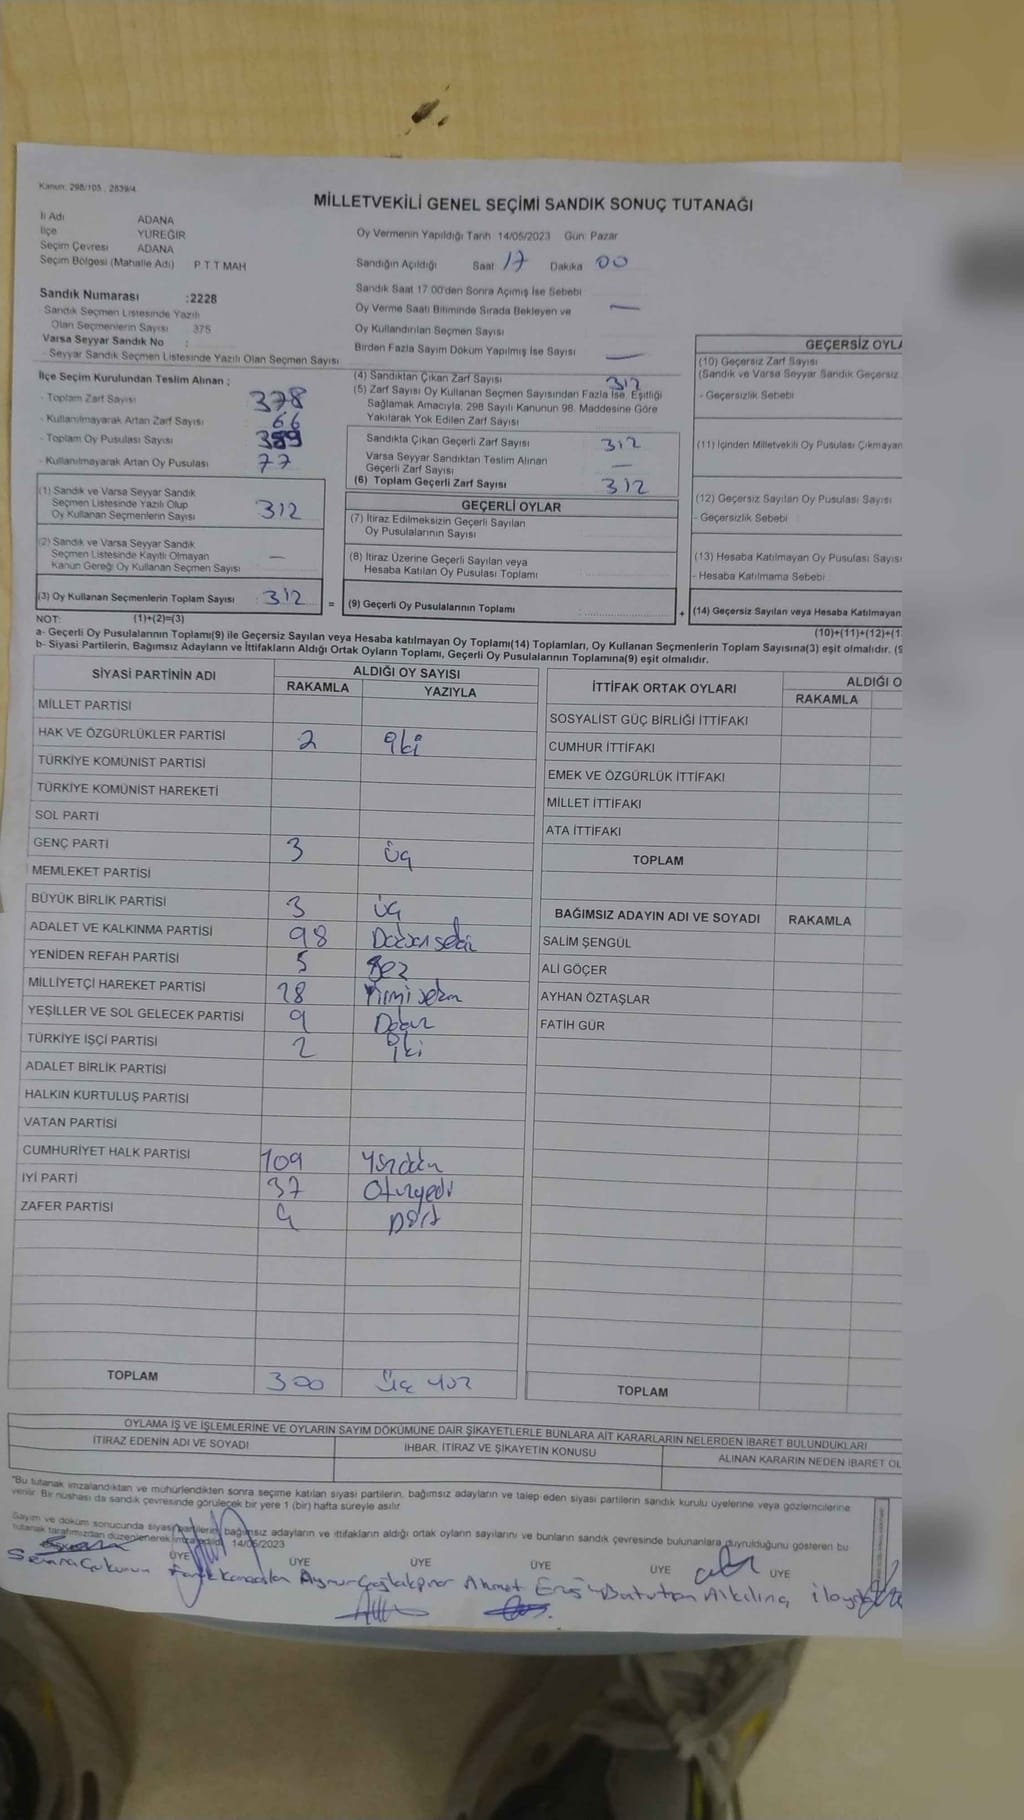 Kanun: 298/105, 2839/4
MİLLETVEKİLİ GENEL SEÇİMİ SANDIK SONUÇ TUTANAĞI
İl Adı ADANA
İlçe YÜREĞİR
Seçim Çevresi ADANA
Seçim Bölgesi (Mahalle Adı) P T T MAH
Oy Vermenin Yapıldığı Tarih 14/05/2023 Gün: Pazar
Sandığın Açıldığı Saat 17 Dakika 00
Sandık Saat 17:00'den Sonra Açılmış İse Sebebi
Oy Verme Saati Bitiminde Sırada Bekleyen ve —
Oy Kullandırılan Seçmen Sayısı
Birden Fazla Sayım Döküm Yapılmış İse Sayısı —
Sandık Numarası :2228
Sandık Seçmen Listesinde Yazılı
Olan Seçmenlerin Sayısı 375
Varsa Seyyar Sandık No :
- Seyyar Sandık Seçmen Listesinde Yazılı Olan Seçmen Sayısı
İlçe Seçim Kurulundan Teslim Alınan ;
- Toplam Zarf Sayısı 378
- Kullanılmayarak Artan Zarf Sayısı 66
- Toplam Oy Pusulası Sayısı 389
- Kullanılmayarak Artan Oy Pusulası 77
(1) Sandık ve Varsa Seyyar Sandık
Seçmen Listesinde Yazılı Olup
Oy Kullanan Seçmenlerin Sayısı 312
(2) Sandık ve Varsa Seyyar Sandık
Seçmen Listesinde Kayıtlı Olmayan
Kanun Gereği Oy Kullanan Seçmen Sayısı —
(3) Oy Kullanan Seçmenlerin Toplam Sayısı 312 =
(4) Sandıktan Çıkan Zarf Sayısı 312
(5) Zarf Sayısı Oy Kullanan Seçmen Sayısından Fazla İse, Eşitliği
Sağlamak Amacıyla, 298 Sayılı Kanunun 98. Maddesine Göre
Yakılarak Yok Edilen Zarf Sayısı
Sandıkta Çıkan Geçerli Zarf Sayısı 312
Varsa Seyyar Sandıktan Teslim Alınan
Geçerli Zarf Sayısı —
(6) Toplam Geçerli Zarf Sayısı 312
GEÇERLİ OYLAR
(7) İtiraz Edilmeksizin Geçerli Sayılan
Oy Pusulalarının Sayısı
(8) İtiraz Üzerine Geçerli Sayılan veya
Hesaba Katılan Oy Pusulası Toplamı
(9) Geçerli Oy Pusulalarının Toplamı +
GEÇERSİZ OYLA
(10) Geçersiz Zarf Sayısı
(Sandık ve Varsa Seyyar Sandık Geçersiz
- Geçersizlik Sebebi
(11) İçinden Milletvekili Oy Pusulası Çıkmayan
(12) Geçersiz Sayılan Oy Pusulası Sayısı
- Geçersizlik Sebebi
(13) Hesaba Katılmayan Oy Pusulası Sayıs
- Hesaba Katılmama Sebebi
(14) Geçersiz Sayılan veya Hesaba Katılmayan
NOT: (1)+(2)=(3) (10)+(11)+(12)+(1
a- Geçerli Oy Pusulalarının Toplamı(9) ile Geçersiz Sayılan veya Hesaba katılmayan Oy Toplamı(14) Toplamları, Oy Kullanan Seçmenlerin Toplam Sayısına(3) eşit olmalıdır. (9
b- Siyasi Partilerin, Bağımsız Adayların ve İttifakların Aldığı Ortak Oyların Toplamı, Geçerli Oy Pusulalarının Toplamına(9) eşit olmalıdır.
SİYASİ PARTİNİN ADI ALDIĞI OY SAYISI
RAKAMLA YAZIYLA
MİLLET PARTİSİ
HAK VE ÖZGÜRLÜKLER PARTİSİ 2 iki
TÜRKİYE KOMÜNİST PARTİSİ
TÜRKİYE KOMÜNİST HAREKETİ
SOL PARTİ
GENÇ PARTİ 3 üç
MEMLEKET PARTİSİ
BÜYÜK BİRLİK PARTİSİ 3 üç
ADALET VE KALKINMA PARTİSİ 98 Doksan sekiz
YENİDEN REFAH PARTİSİ 5 Beş
MİLLİYETÇİ HAREKET PARTİSİ 28 Yirmi sekiz
YEŞİLLER VE SOL GELECEK PARTİSİ 9 Dokuz
TÜRKİYE İŞÇİ PARTİSİ 2 İki
ADALET BİRLİK PARTİSİ
HALKIN KURTULUŞ PARTİSİ
VATAN PARTİSİ
CUMHURİYET HALK PARTİSİ 109 Yüzdokuz
İYİ PARTİ 37 Otuzyedi
ZAFER PARTİSİ 4 Dört
TOPLAM 300 Üç yüz
İTTİFAK ORTAK OYLARI ALDIĞI O
RAKAMLA
SOSYALİST GÜÇ BİRLİĞİ İTTİFAKI
CUMHUR İTTİFAKI
EMEK VE ÖZGÜRLÜK İTTİFAKI
MİLLET İTTİFAKI
ATA İTTİFAKI
TOPLAM
BAĞIMSIZ ADAYIN ADI VE SOYADI RAKAMLA
SALİM ŞENGÜL
ALİ GÖÇER
AYHAN ÖZTAŞLAR
FATİH GÜR
TOPLAM
OYLAMA İŞ VE İŞLEMLERİNE VE OYLARIN SAYIM DÖKÜMÜNE DAİR ŞİKAYETLERLE BUNLARA AİT KARARLARIN NELERDEN İBARET BULUNDUKLARI
İTİRAZ EDENİN ADI VE SOYADI İHBAR, İTİRAZ VE ŞİKAYETİN KONUSU ALINAN KARARIN NEDEN İBARET OL
"Bu tutanak imzalandıktan ve mühürlendikten sonra seçime katılan siyasi partilerin, bağımsız adayların ve talep eden siyasi partilerin sandık kurulu üyelerine veya gözlemcilerine
verilir. Bir nüshası da sandık çevresinde görülecek bir yere 1 (bir) hafta süreyle asılır.
Sayım ve döküm sonucunda siyasi partilerin, bağımsız adayların ve ittifakların aldığı ortak oyların sayılarını ve bunların sandık çevresinde bulunanlara duyrulduğunu gösteren bu
tutanak tarafımızdan düzenlenerek imza edildi. 14/05/2023
ÜYE ÜYE ÜYE ÜYE ÜYE ÜYE
Ahmet